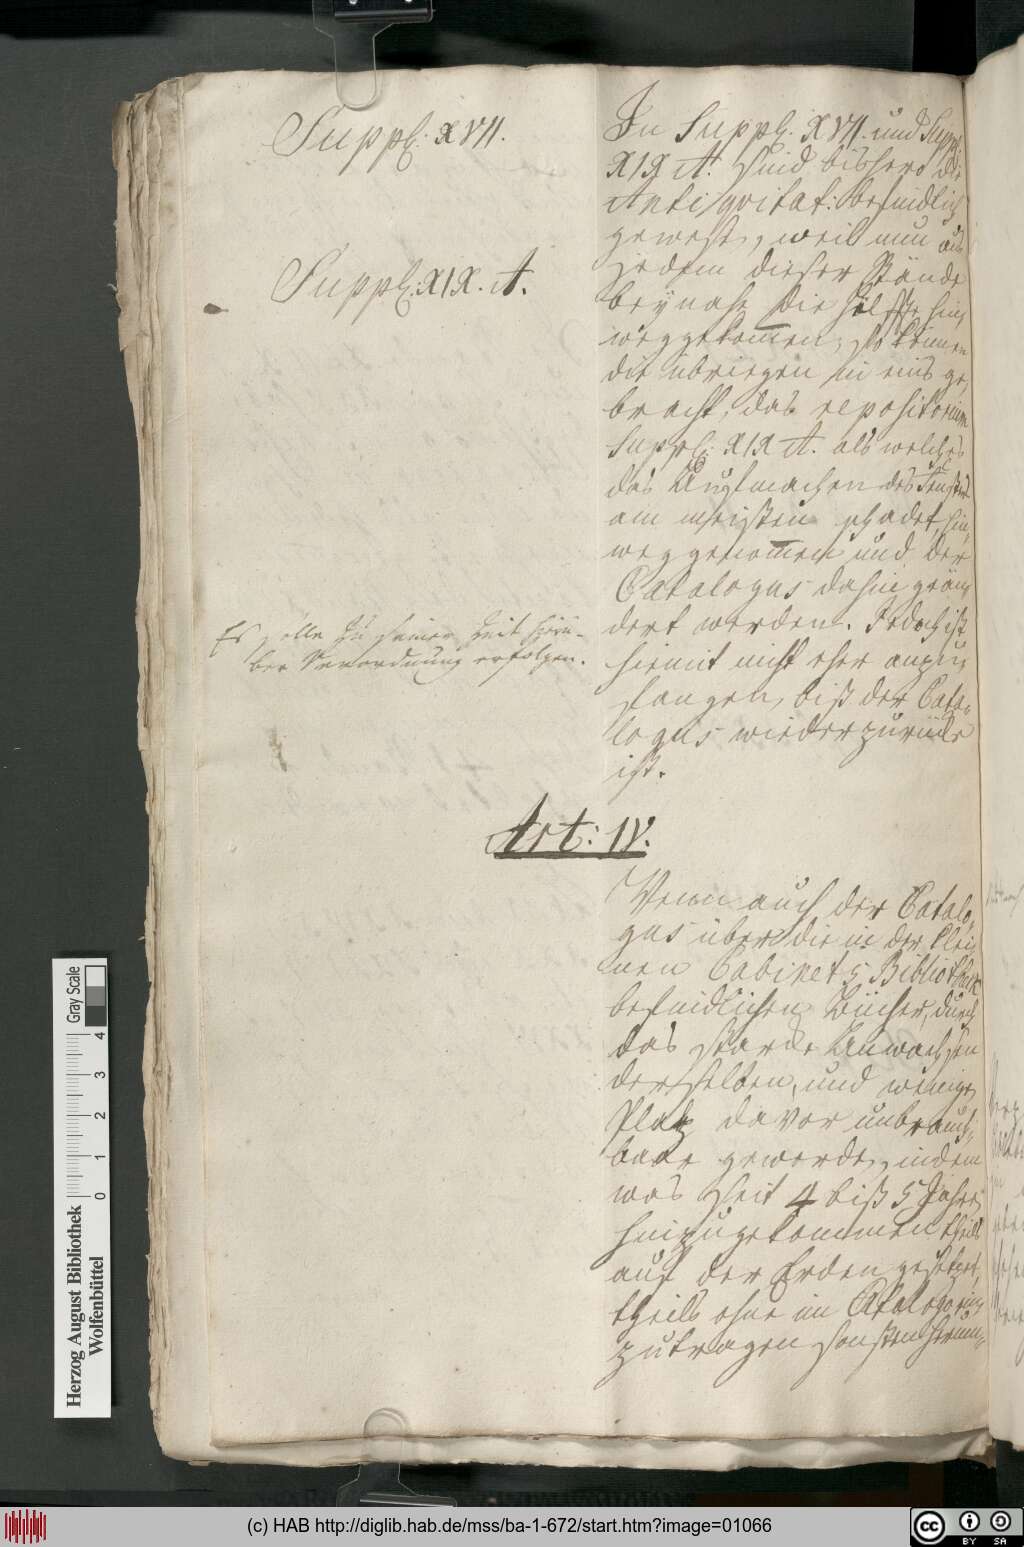 Suppl: XVII.
Suppl: XIX. A.
Es solle zu seiner Zeit hierü-
ber Verordnung erfolgen.
In Suppl. XVII. und Suppl.
XIX A. sind bishero die
Antiqvitat: befindlich
gewest, weil nun aus
jedem dieser Stände
beynahe die hälffte hin,
weggekommen, so können
die übriegen in eins ge,
bracht, das repositorium
Suppl: XIX A. als welches
das Auffmachen des Fensters
am meisten schadet, hin,
weggenommen und der
Catalogus dahin geän,
dert werden. Jedoch ist
hiemit nicht eher anzu,
fangen, biß der Cata-
logus wieder zurücke
ist.
Art: IV.
Wenn auch der Catalo,
gus über die in der klei,
nen Cabinets Bibliotheck
befindlichen Bücher, durch
das starcke Anwachsen
derselben, und wenigen
Platz davor unbrauch-
baar geworde, indem
was seit 4 biß 5 Jahre
hinzugekommen theils
auf der Erden gesetzet,
theils ohne im Catalogo ein
zutragen sonsten herum-
Gray Scale
0 1 2 3 4
Herzog August Bibliothek
Wolfenbüttel
(c) HAB http://diglib.hab.de/mss/ba-1-672/start.htm?image=01066
cc BY SA